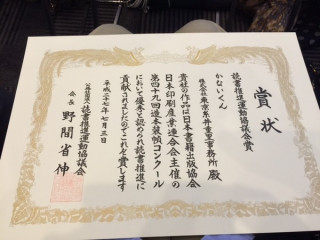 賞状
読書推進運動協議会賞
かないくん
株式会社東京糸井重里事務所 殿
貴社の作品は日本書籍出版協会
日本印刷産業連合会主催の
第四十九回造本装幀コンクール
において優秀と認められ読書推進に
貢献されましたのでこれを賞します
平成二十七年七月三日
公益社団法人 読書推進運動協議会
会長 野間省伸